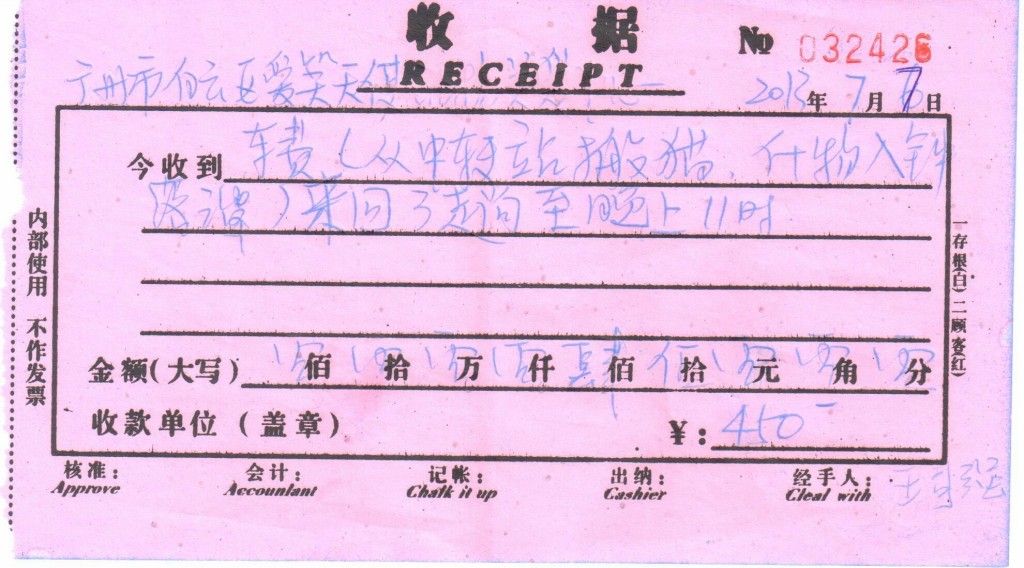 收据
№ 032426
RECEIPT
广州市白云区爱笑天使
2013年7月7日
今收到 车费(从中转站搬猫、什物入
)来回3趟至晚上11时
金额(大写) 零佰零拾零万零仟肆佰伍拾零元零角零分
收款单位(盖章) ¥:450-
核准: 会计: 记帐: 出纳: 经手人:
Approve Accountant Chalk it up Cashier Cleal with
内部使用 不作发票
一存根(白)二顾客(红)